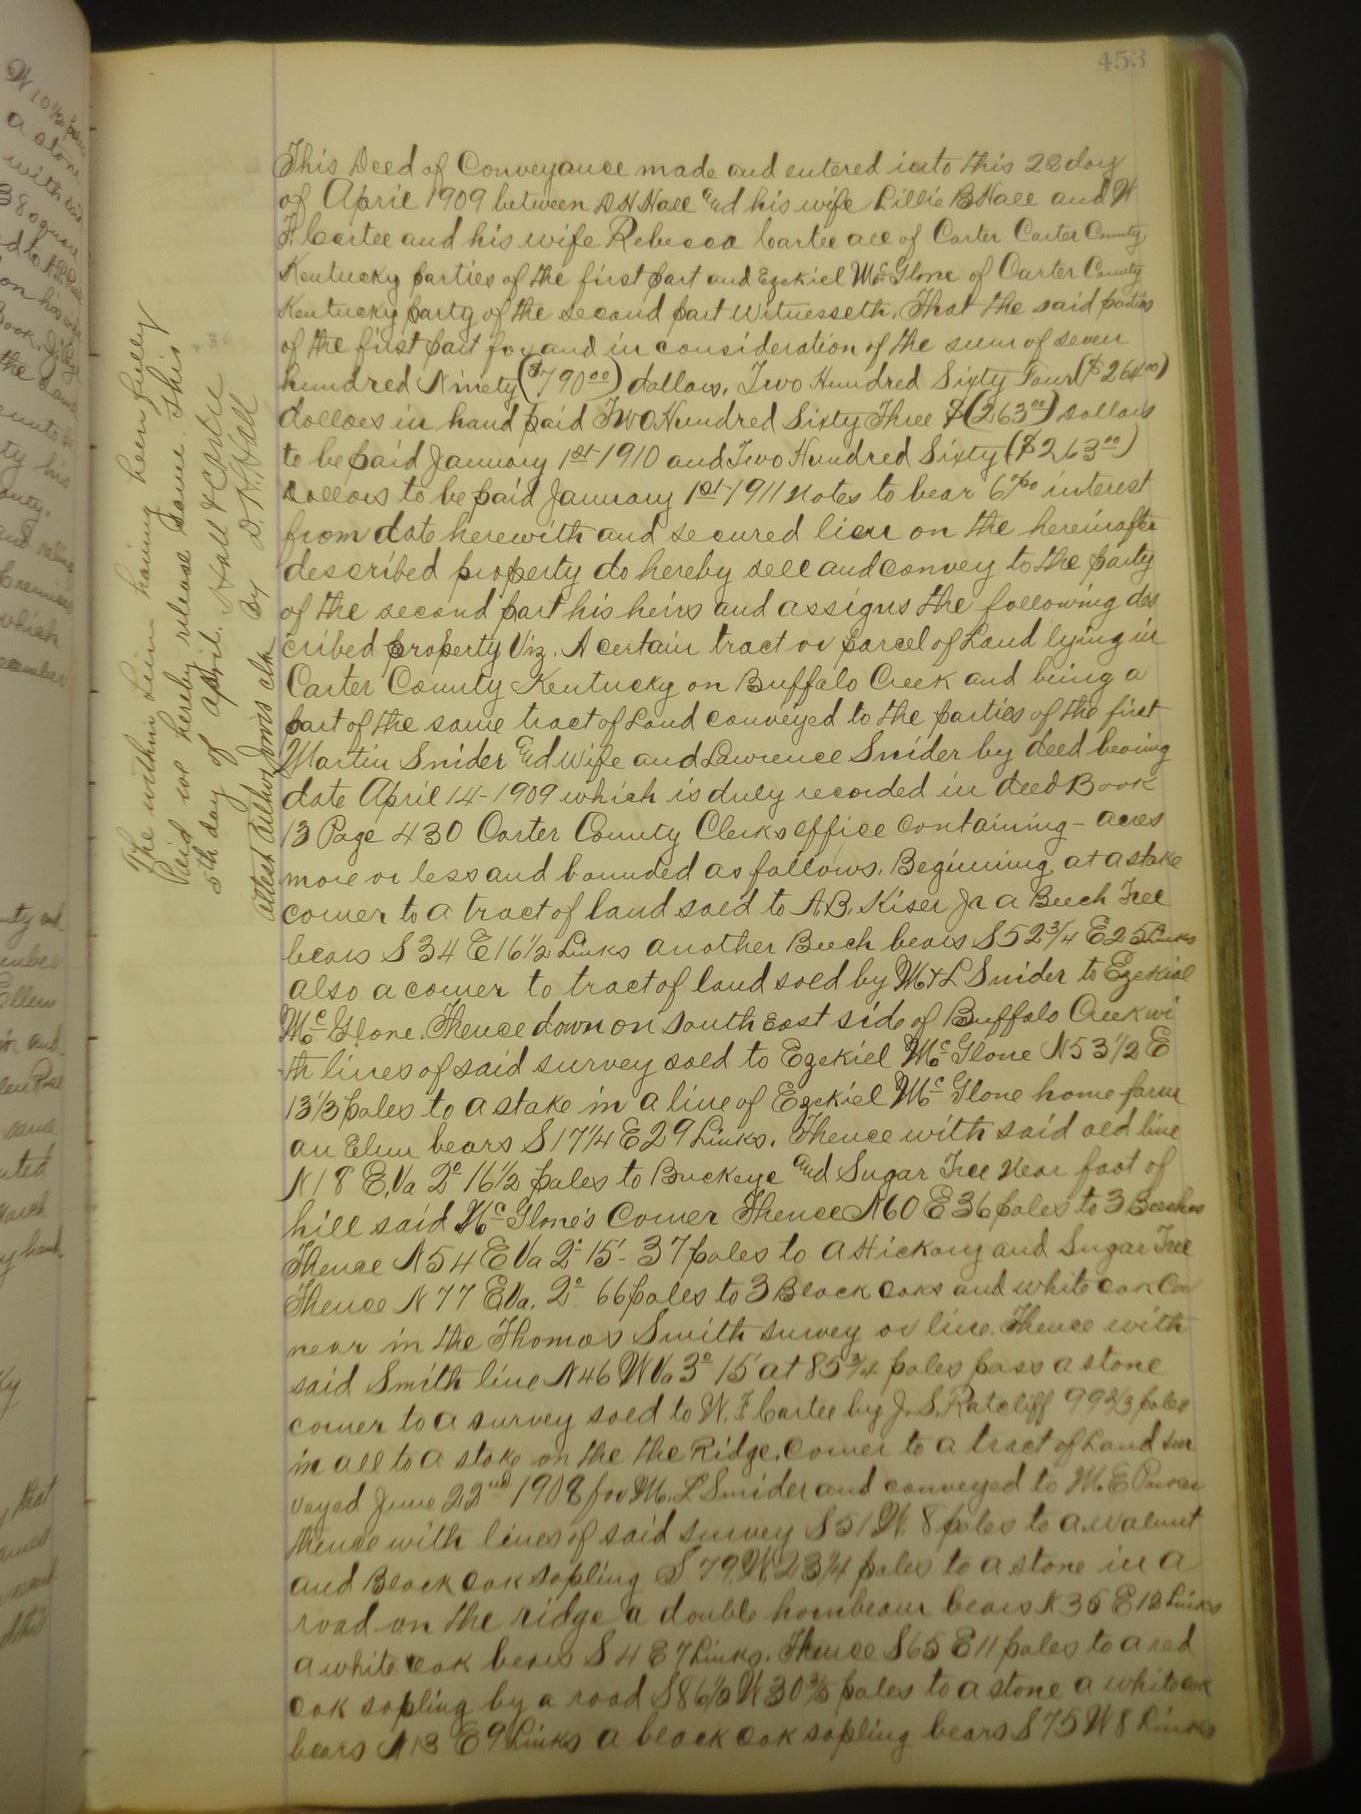 453
This Deed of Conveyance made and entered into this 22 day
of April 1909 between D N Hall and his wife Lillie B Hall and W
F. Cartee and his wife Rebecca Cartee all of Carter Carter County
Kentucky parties of the first part and Ezekiel McGlone of Carter County
Kentucky party of the second part Witnesseth. That the said parties
of the first part for and in consideration of the sum of seven
hundred Ninety ($790 00) dollars, Two Hundred Sixty Four ($264 00)
dollars in hand paid Two Hundred Sixty Three $(263 00) Dollars
to be paid January 1st 1910 and Two Hundred Sixty ($263 00)
Dollars to be paid January 1st 1911 Notes to bear 6% interest
from date herewith and secured lien on the hereinafter
described property do hereby sell and convey to the party
of the second part his heirs and assigns the following des
cribed property Viz. A certain tract or parcel of Land lying in
Carter County Kentucky on Buffalo Creek and being a
part of the same tract of Land conveyed to the parties of the first
Martin Snider and Wife and Lawrence Snider by deed bearing
date April 14 - 1909 which is duly recorded in deed Book
13 Page 430 Carter County Clerks office containing - acres
more or less and bounded as follows. Beginning at a stake
corner to a tract of land sold to A.B. Kiser Jr a Beech Tree
bears S 34 E 16 1/2 Links another Beech bears S 52 3/4 E 25 Links
also a corner to tract of land sold by M & L Snider to Ezekiel
McGlone. Thence down on South East side of Buffalo Creek wi
th lines of said survey sold to Ezekiel McGlone N 53 1/2 E
13 1/3 poles to a stake in a line of Ezekiel McGlone home farm
an Elm bears S 17 1/4 E 29 Links. Thence with said old line
N 18 E. Va 2° 16 1/2 poles to Buckeye and Sugar Tree near foot of
hill said McGlone's Corner Thence N 60 E 36 poles to 3 Beeches
Thence N 54 E Va 2° 15' - 37 poles to a Hickory and Sugar Tree
Thence N 77 E Va. 2° 66 poles to 3 Black oaks and white oak Cor
near in the Thomas Smith survey or line. Thence with
said Smith line N 46 W Va 3° 15' at 85 3/4 poles pass a stone
corner to a survey sold to W. F Cartee by J. S. Ratcliff 99 2/3 poles
in all to a stake on the the Ridge, corner to a tract of Land sur
veyed June 22nd 1908 for M. L Snider and conveyed to M. E
thence with lines of said survey S 51 W. 8 poles to a walnut
and Black oak sapling S 79 W 23 1/4 poles to a stone in a
road on the ridge a double hornbeam bears N 36 E 12 Links
a white oak bears S 4 E 7 Links. Thence S 65 E 11 poles to a red
oak sapling by a road S 86 1/2 W 30 3/5 poles to a stone a white oak
bears N 13 E 9 Links a black oak sapling bears S 75 W 8 Links
The within Lien having been fully
Paid we hereby release same. This
5th day of April. Hall & Cartee
By D. N. Hall
Attest Clk